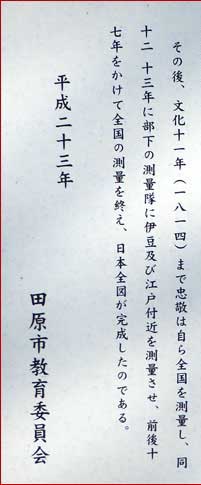 その後、文化十一年（一八一四）まで忠敬は自ら全国を測量し、同
十二 十三年に部下の測量隊に伊豆及び江戸付近を測量させ、前後十
七年をかけて全国の測量を終え、日本全図が完成したのである。
平成二十三年
田原市教育委員会